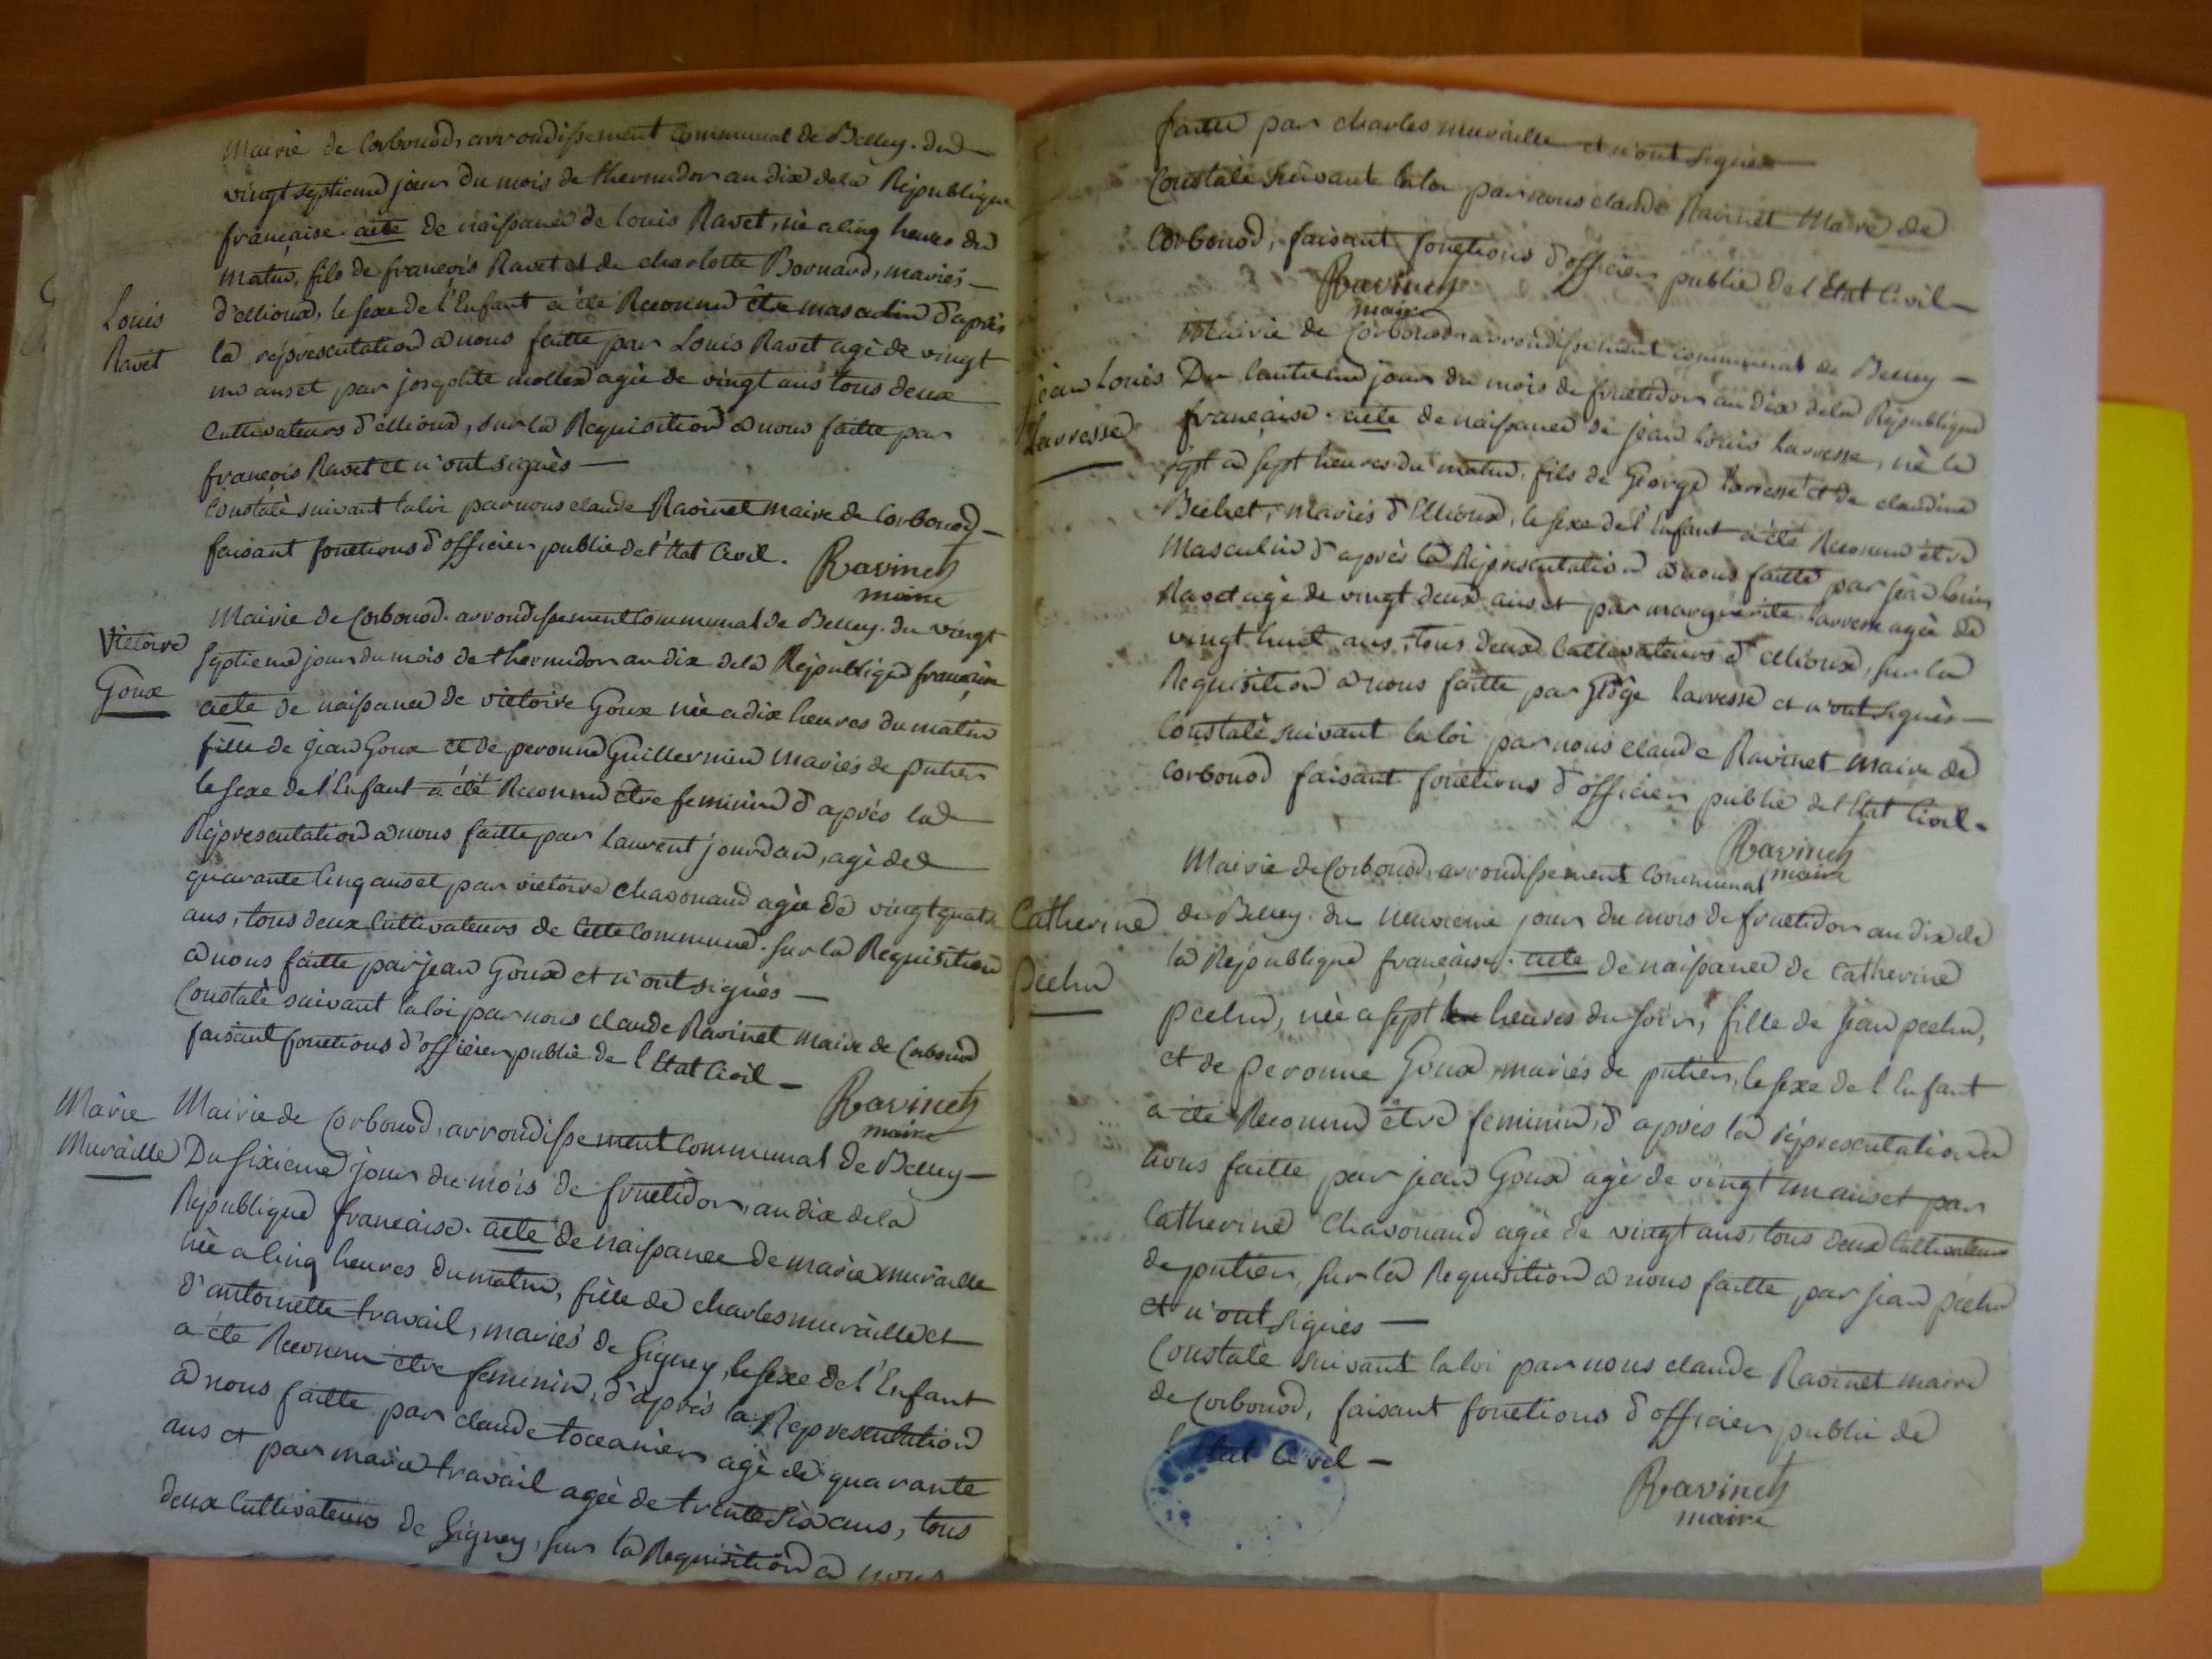 Mairie de Corbonod, arrondissement Communal de Belley. du
vingt septieme jour du mois de thermidor an dix de la Républiqu
française. acte de naissance de louis Ravet, né a cinq heures du
matin, fils de françois Ravet et de charlotte Bornard, mariés
Louis
Ravet
d'Ellioux, le sexe de l'Enfant a été Reconnu être masculin d'après
la répresentation a nous faitte par Louis Ravet agé de vingt
un ans et par josephte mollex agée de vingt ans tous deux
Cultivateurs d'Ellioux, sur la Requisition a nous faitte par
françois Ravet et n'ont signés —
Constaté suivant la loi par nous claude Ravinet maire de Corbonod —
faisant fonctions d'officier public de l'Etat Civil.
Ravinet
maire
Victoire
Goux
Mairie de Corbonod. arrondissement Communal de Belley. du vingt
septieme jour du mois de thermidor an dix de la République française
acte de naissance de victoire Goux née a dix heures du matin
fille de jean Goux et de peronne Guillermin mariés de putier
le sexe de l'Enfant a été Reconnu être feminin d'après la
Répresentation a nous faitte par laurent jourdan, agé de
quarante Cinq ans et par victoire Chavonand agée de vingt quatre
ans, tous deux Cultivateurs de Cette Commune. sur la Requisition
a nous faitte par jean Goux et n'ont signés —
Constaté suivant la loi par nous claude Ravinet maire de Corbonod
faisant fonctions d'officier public de l'Etat Civil —
Ravinet
maire
Marie
Muraille
Mairie de Corbonod, arrondissement Communal de Belley —
Du sixieme jour du mois de fructidor, an dix de la
République française. acte de naissance de marie muraille
née a Cinq heures du matin, fille de charles muraille et
d'antoinette travail, mariés de Gigney, le sexe de l'Enfant
a été Reconnu être feminin, d'après la Répresentation
a nous faitte par claude tocanier agé de quarante
ans et par marie travail agée de trente six ans, tous
deux Cultivateurs de Gigney, sur la Requisition a nous
faitte par charles muraille et n'ont signés —
Constaté suivant la loi par nous claude Ravinet Maire de
Corbonod, faisant fonctions d'officier public de l'Etat Civil —
Ravinet
maire
jean Louis
Larresse
Mairie de Corbonod arrondissement Communal de Belley —
Du huitieme jour du mois de fructidor an dix de la République
française. acte de naissance de jean Louis Larresse, né le
sept a sept heures du matin, fils de George larresse et de claudine
Bechet, mariés d'Ellioux, le sexe de l'Enfant a été Reconnu être
Masculin d'après la Répresentation a nous faitte par jean Louis
Ravet agé de vingt deux ans et par marguerite larresse agée de
vingt huit ans, tous deux Cultivateurs d'Ellioux, sur la
Requisition a nous faitte par Goge larresse et n'ont signés —
Constaté suivant la loi par nous claude Ravinet maire de
Corbonod faisant fonctions d'officier public de l'Etat Civil —
Ravinet
maire
Catherine
péclu
Mairie de Corbonod, arrondissement Communal
de Belley. du neuvieme jour du mois de fructidor an dix de
la République française. acte de naissance de Catherine
péclu, née a sept heures du soir, fille de jean péclu,
et de peronne Goux, mariés de putier, le sexe de l'Enfant
a été Reconnu être feminin, d'après la répresentation a
nous faitte par jean Goux agé de vingt un ans et par
Catherine Chavonand agée de vingt ans, tous deux Cultivateurs
de putier, sur la Requisition a nous faitte par jean péclu
et n'ont signés —
Constaté suivant la loi par nous claude Ravinet maire
de Corbonod, faisant fonctions d'officier public de
l'Etat Civil —
Ravinet
maire